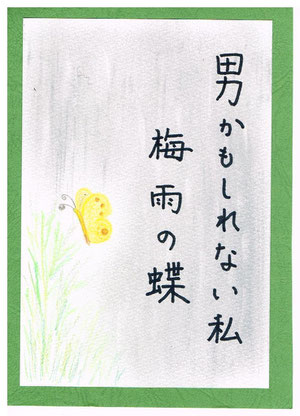 男かもしれない私
梅雨の蝶